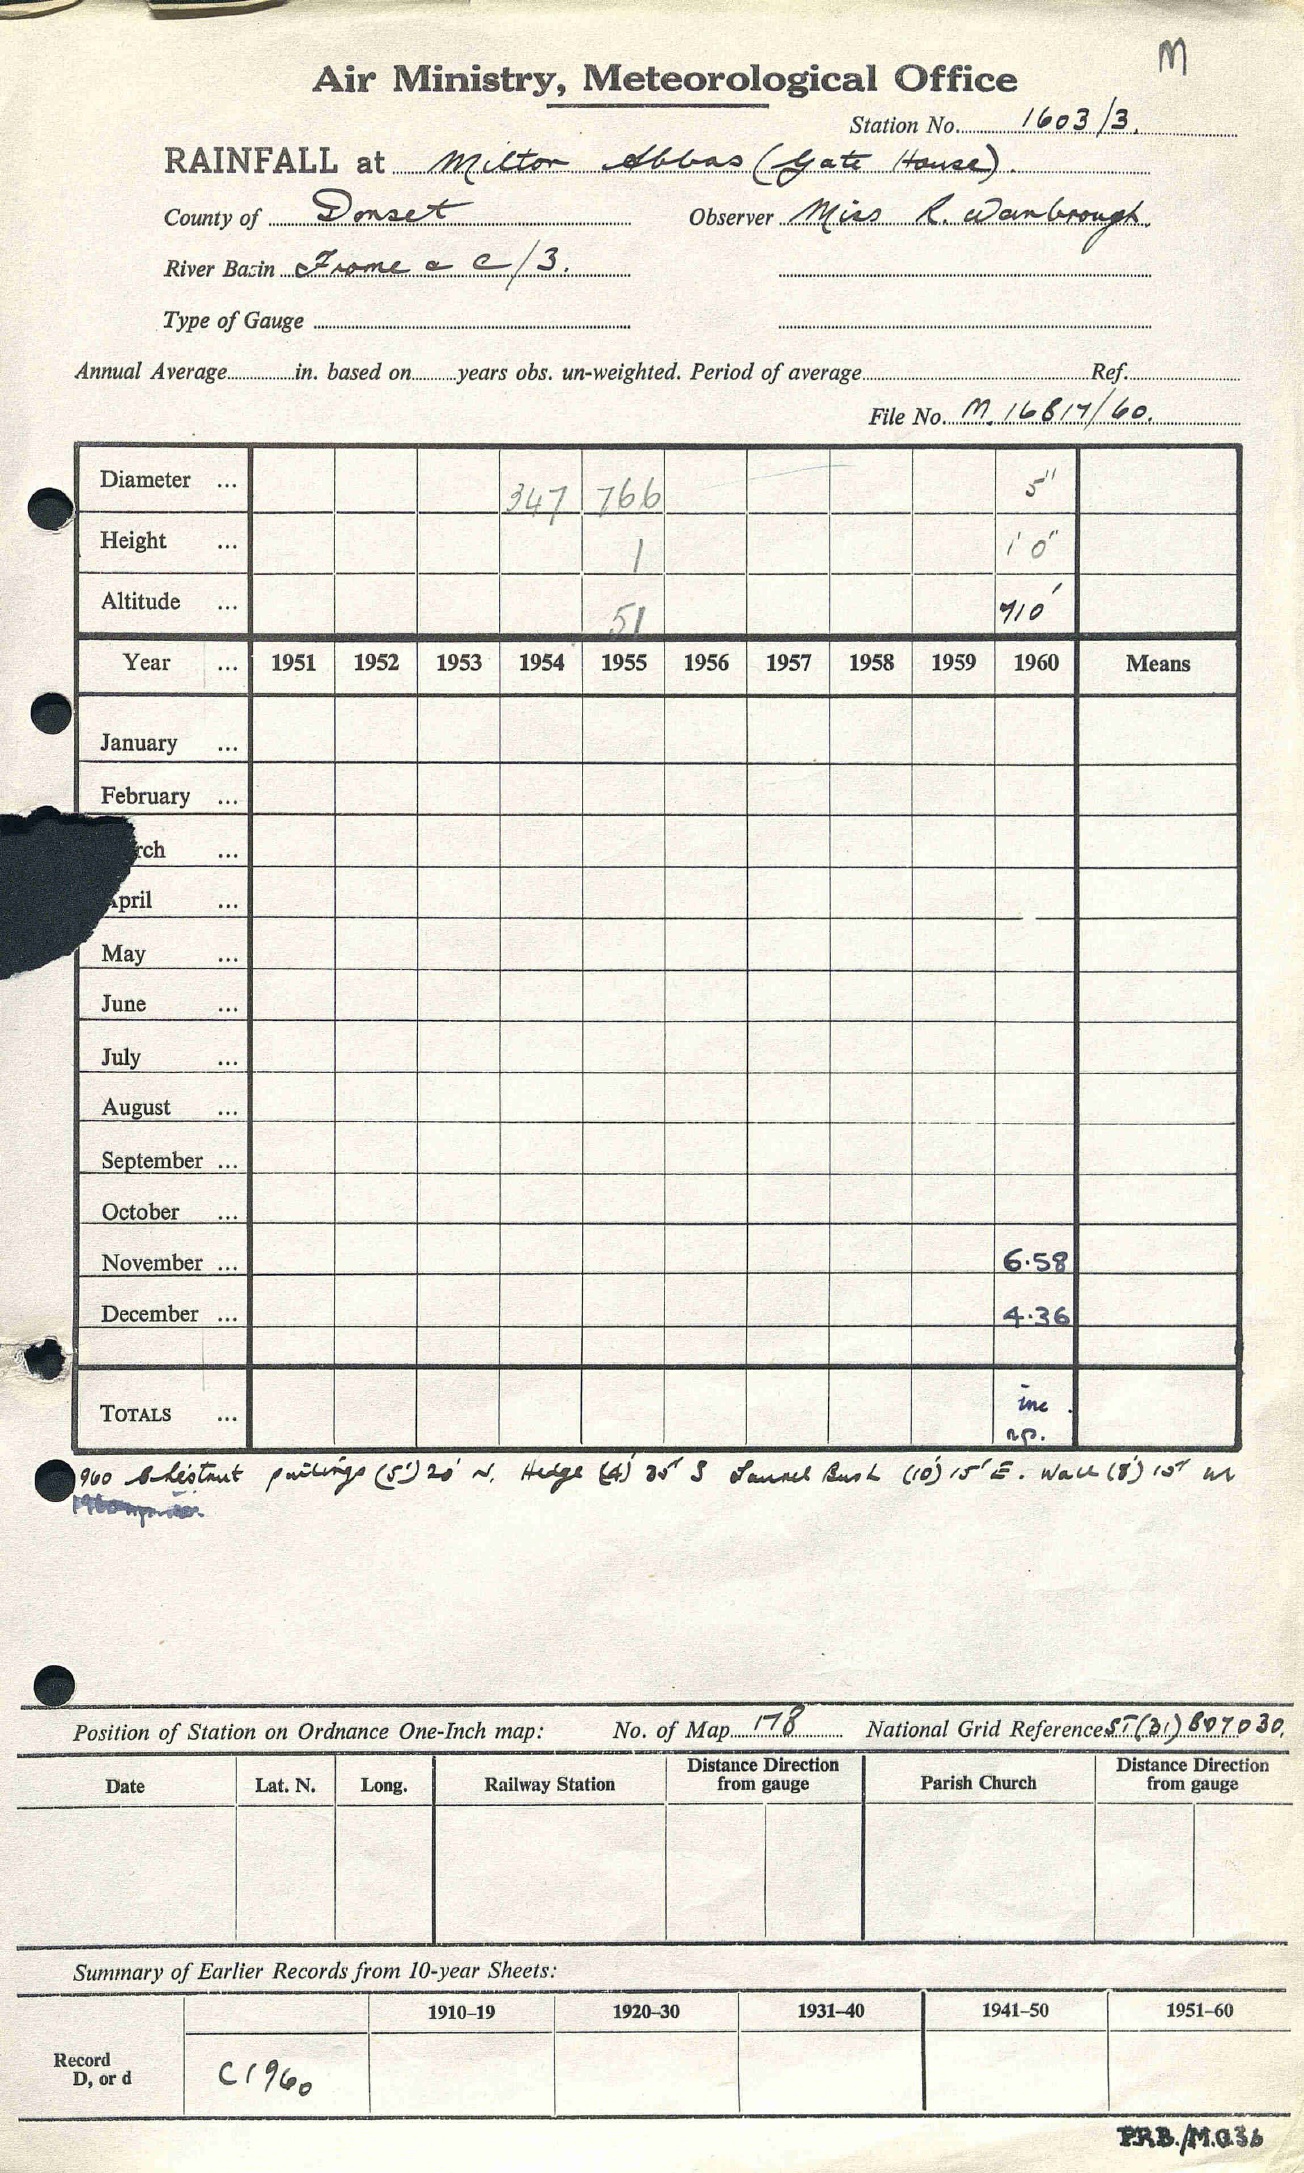 M
Air Ministry, Meteorological Office
Station No. 1603/3.
RAINFALL at Milton Abbas (Gate House).
County of Dorset Observer Miss R. Wanbrough.
River Basin Frome & C/3.
Type of Gauge
Annual Average in. based on years obs. un-weighted. Period of average Ref.
File No. M. 16817/60.
Diameter ... 347 766 5"
Height ... 1 1' 0"
Altitude ... 51 710'
Year ... 1951 1952 1953 1954 1955 1956 1957 1958 1959 1960 Means
January ...
February ...
rch ...
April ...
May ...
June ...
July ...
August ...
September ...
October ...
November ... 6.58
December ... 4.36
TOTALS ... inc.
n.p.
960 Chestnut pailings (5') 20' N. Hedge (4') 35' S Laurel Bush (10') 15' E. Wall (8') 15' W
Position of Station on Ordnance One-Inch map: No. of Map 178 National Grid Reference ST(31) 807030.
Date Lat. N. Long. Railway Station Distance Direction from gauge Parish Church Distance Direction from gauge
Summary of Earlier Records from 10-year Sheets:
1910–19 1920–30 1931–40 1941–50 1951–60
Record
D, or d C1960
PRB./M.036